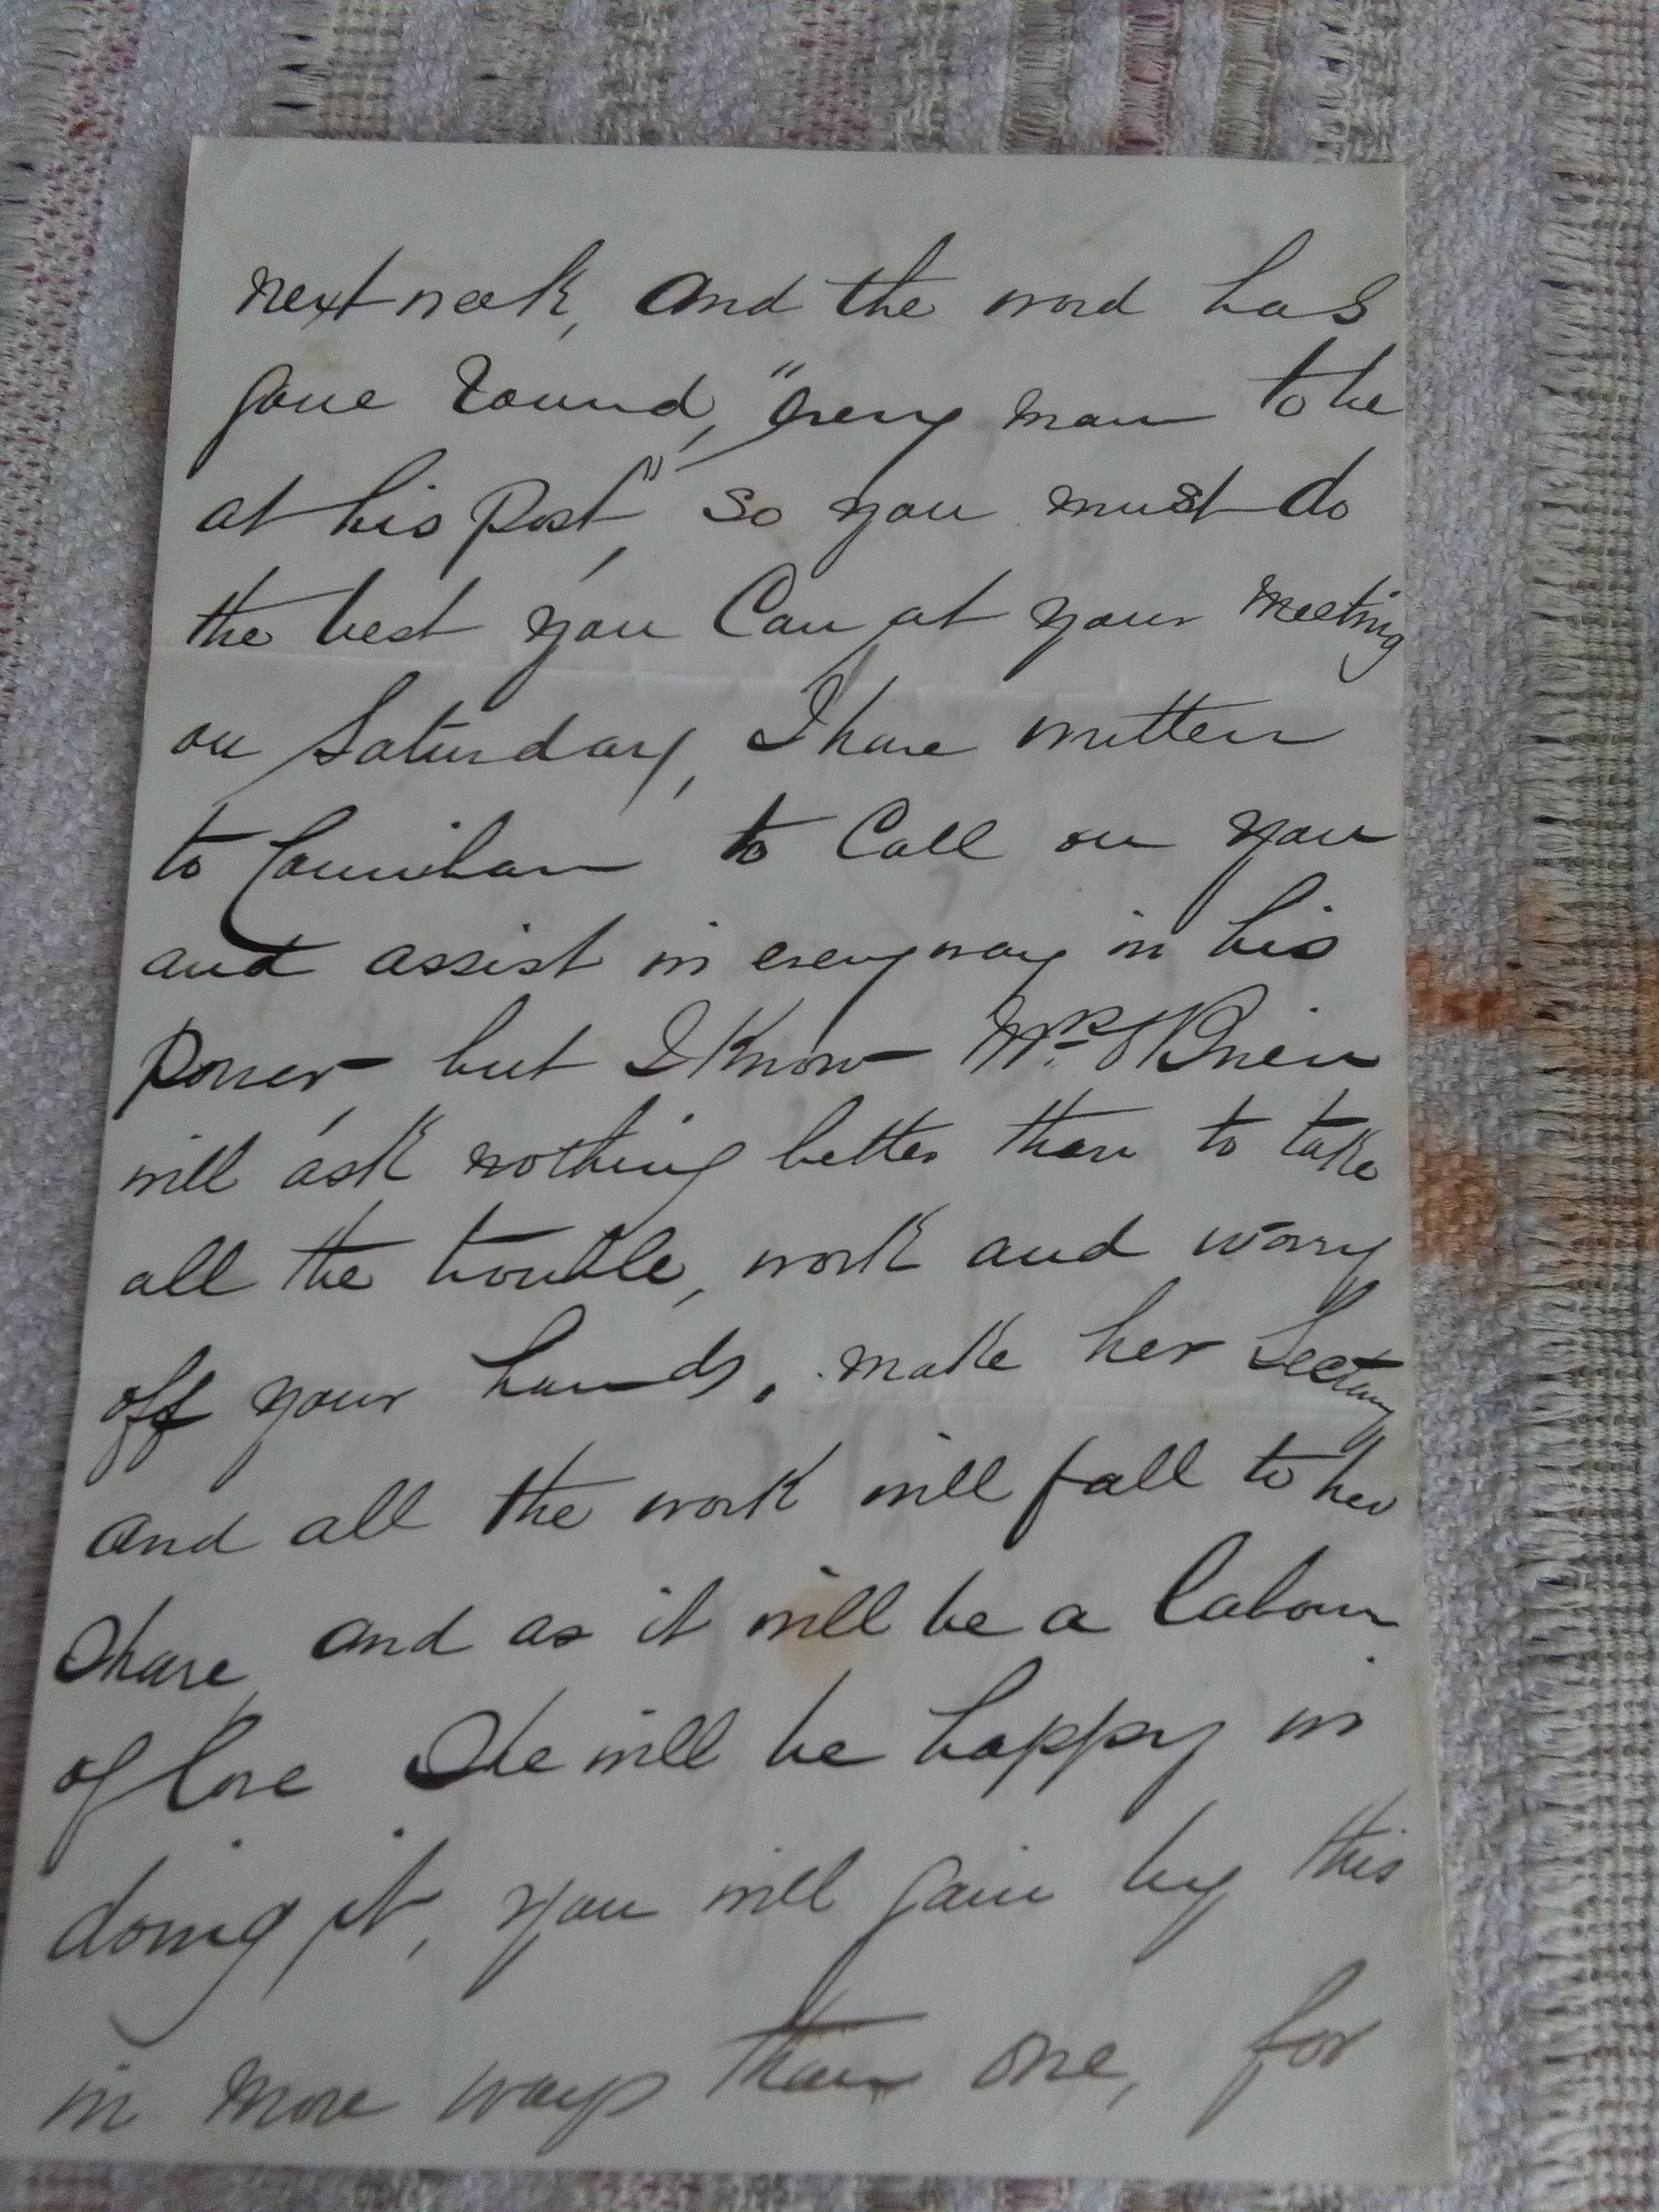 next week, and the word has
gone round, "every man to be
at his post", so you must do
the best you Can at your meeting
on Saturday, I have written
to Counihan to Call on you
and assist in every way in his
power, but I know Mrs O'Brien
will ask nothing better than to take
all the trouble, work and worry
off your hands, make her Secty
and all the work will fall to her
Share, and as it will be a labour
of love She will be happy in
doing it, you will gain by this
in more ways than one, for